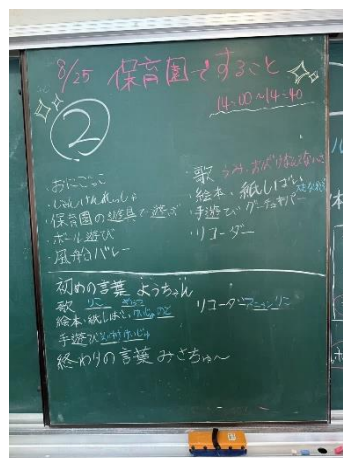 8/25 保育園ですること
14:00〜14:40
②
・おにごっこ
・じゃんけんれっしゃ
・保育園の遊具で遊ぶ
・ボール遊び
・風船バレー
・歌 うみ・おばけなんてないさ
・絵本・紙しばい
・手遊び グーチョキパー
・リコーダー
初めの言葉 ようちゃん
歌 りこ
絵本・紙しばい
手遊び
リコーダー りこ
終わりの言葉 みさちゅ〜